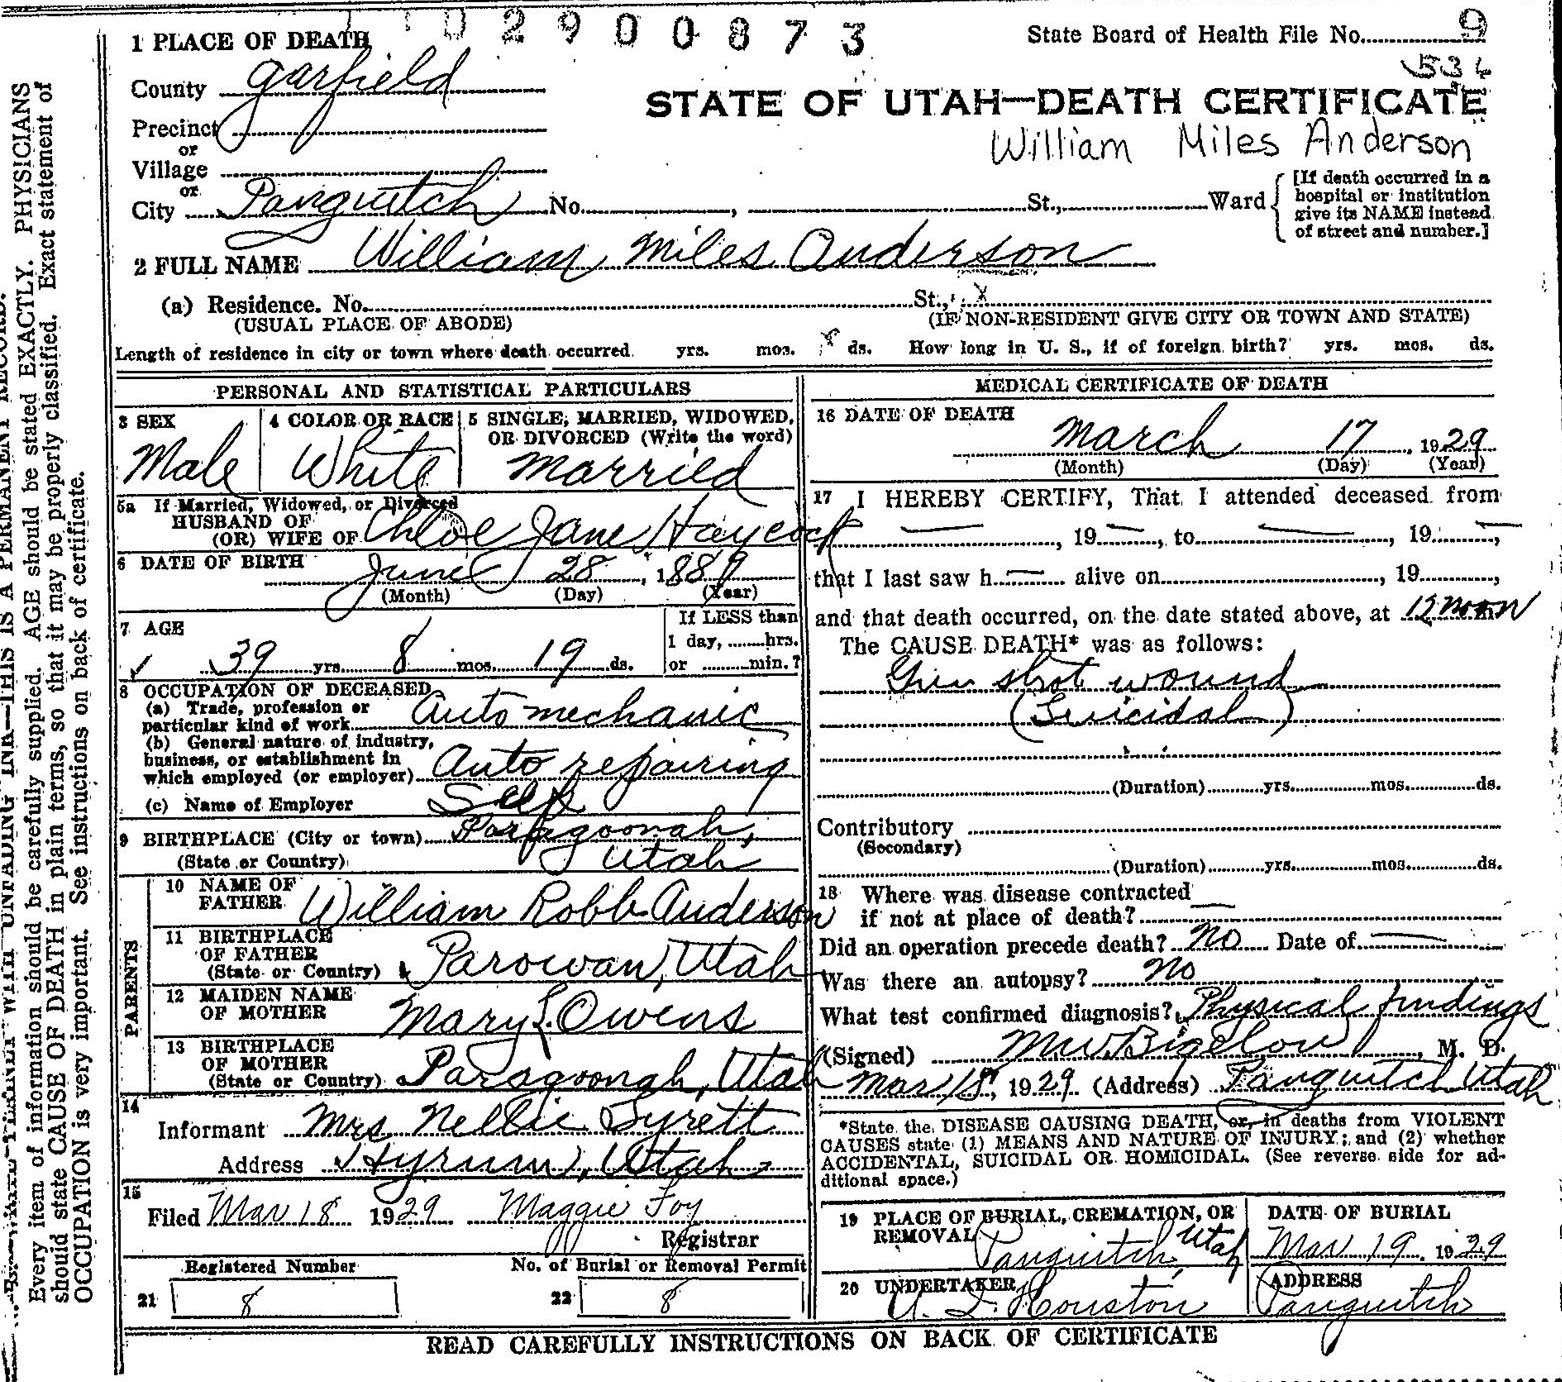 02900873
State Board of Health File No. 9
536
1 PLACE OF DEATH
County Garfield
STATE OF UTAH—DEATH CERTIFICATE
Precinct
or
William Miles Anderson
Village
or
City Panguitch No. , St., Ward
[If death occurred in a hospital or institution give its NAME instead of street and number.]
2 FULL NAME William Miles Anderson
(a) Residence. No. St., x
(USUAL PLACE OF ABODE) (IF NON-RESIDENT GIVE CITY OR TOWN AND STATE)
Length of residence in city or town where death occurred yrs. mos. ds. How long in U. S., if of foreign birth? yrs. mos. ds.
PERSONAL AND STATISTICAL PARTICULARS
3 SEX
Male
4 COLOR OR RACE
White
5 SINGLE, MARRIED, WIDOWED,
OR DIVORCED (Write the word)
Married
5a If Married, Widowed, or Divorced
HUSBAND OF
(OR) WIFE OF Chloe Jane Haycock
6 DATE OF BIRTH June 28, 1889
(Month) (Day) (Year)
7 AGE
39 yrs. 8 mos. 19 ds.
If LESS than
1 day, hrs.
or min.?
8 OCCUPATION OF DECEASED
(a) Trade, profession or
particular kind of work Auto mechanic
(b) General nature of industry,
business, or establishment in
which employed (or employer) Auto repairing
(c) Name of Employer Self
9 BIRTHPLACE (City or town) Paragoonah,
(State or Country) Utah
PARENTS
10 NAME OF
FATHER William Robb Anderson
11 BIRTHPLACE
OF FATHER
(State or Country) Parowan, Utah
12 MAIDEN NAME
OF MOTHER Mary L. Owens
13 BIRTHPLACE
OF MOTHER
(State or Country) Paragoonah, Utah
14
Informant Mrs Nellie Syrett
Address Hyrum, Utah
15
Filed Mar 18 1929 Maggie Foy
Registrar
Registered Number No. of Burial or Removal Permit
21 8 22 8
MEDICAL CERTIFICATE OF DEATH
16 DATE OF DEATH
March 17, 1929
(Month) (Day) (Year)
17 I HEREBY CERTIFY, That I attended deceased from
—, 19—, to —, 19—,
that I last saw h— alive on , 19 ,
and that death occurred, on the date stated above, at 12 noon
The CAUSE DEATH* was as follows:
Gun shot wound
(Suicidal)
(Duration) yrs. mos. ds.
Contributory
(Secondary)
(Duration) yrs. mos. ds.
18 Where was disease contracted
if not at place of death? —
Did an operation precede death? No Date of —
Was there an autopsy? No
What test confirmed diagnosis? Physical findings
(Signed) M.W. Bigelow, M. D.
Mar 18, 1929 (Address) Panguitch Utah
*State the DISEASE CAUSING DEATH, or, in deaths from VIOLENT
CAUSES state (1) MEANS AND NATURE OF INJURY; and (2) whether
ACCIDENTAL, SUICIDAL OR HOMICIDAL. (See reverse side for ad-
ditional space.)
19 PLACE OF BURIAL, CREMATION, OR
REMOVAL Panguitch, Utah
DATE OF BURIAL
Mar 19, 1929
20 UNDERTAKER
Houston
ADDRESS
Panguitch
READ CAREFULLY INSTRUCTIONS ON BACK OF CERTIFICATE
UNFADING INK—THIS IS A PERMANENT RECORD.
Every item of information should be carefully supplied. AGE should be stated EXACTLY. PHYSICIANS
should state CAUSE OF DEATH in plain terms, so that it may be properly classified. Exact statement of
OCCUPATION is very important. See instructions on back of certificate.